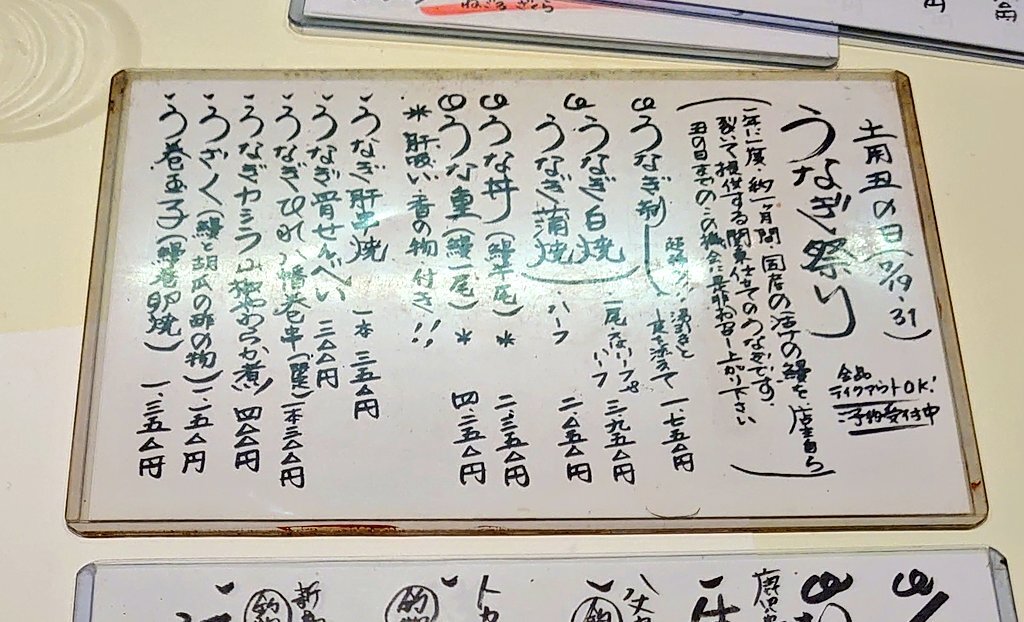 土用丑の日(7/19・31)
うなぎ祭り
全品
テイクアウトOK!
ご予約受付中
(一年に一度・約一ヶ月間・国産の活の鰻を、店主自ら
裂いて提供する関東仕立てのうなぎです。
丑の日までのこの機会に是非お召し上がり下さい)
うなぎ刺し 一、七五〇円
うなぎ白焼 一尾 三、九五〇円
うなぎ蒲焼 ハーフ 二、〇五〇円
うな丼(鰻半尾)* 二、三五〇円
うな重(鰻一尾)* 四、二五〇円
*肝吸い・香の物 付き!!
うなぎ肝串焼 一本 三五〇円
うなぎ骨せんべい 三〇〇円
うなぎひれ八幡巻串 一本 三〇〇円
うなぎカシラ山椒やわらか煮 四〇〇円
うざく(鰻と胡瓜の酢の物) 一、一五〇円
う巻玉子(鰻巻卵焼) 一、三五〇円
ねごろざくら
円
円
新
釣
釣
トカ
八丈
釣
鹿児